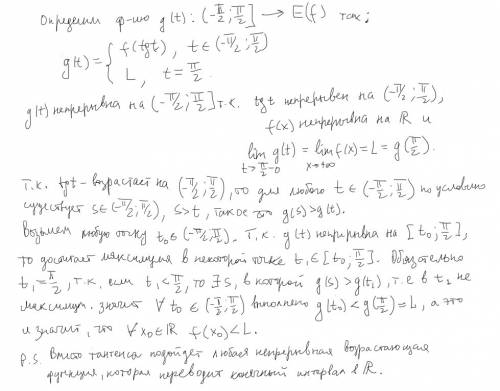 Определим ф-ию g(t): (-π/2; π/2] → E(f) так:
g(t) = { f(tg t), t ∈ (-π/2; π/2)
L, t = π/2.
g(t) непрерывна на (-π/2; π/2] т.к. tg t непрерывен на (-π/2; π/2),
f(x) непрерывна на ℝ и
lim g(t) = lim f(x) = L = g(π/2).
t→π/2-0 x→+∞
Т.к. tg t - возрастает на (-π/2; π/2), то для любого t ∈ (-π/2; π/2) по условию
существует s ∈ (-π/2; π/2), s > t, такое что g(s) > g(t).
Возьмем любую точку t₀ ∈ (-π/2; π/2). Т.к. g(t) непрерывна на [t₀; π/2],
то достигает максимума в некоторой точке t₁ ∈ [t₀; π/2]. Обязательно
t₁ = π/2, т.к. если t₁ < π/2, то ∃ s, в которой g(s) > g(t₁), т.е в t₁ не
максимум. Значит ∀ t₀ ∈ (-π/2; π/2) выполнено g(t₀) < g(π/2) = L, а это
и значит, что ∀ x₀ ∈ ℝ f(x₀) < L.
P.S. Вместо тангенса подойдет любая непрерывная возрастающая
функция, которая переводит конечный интервал в ℝ.